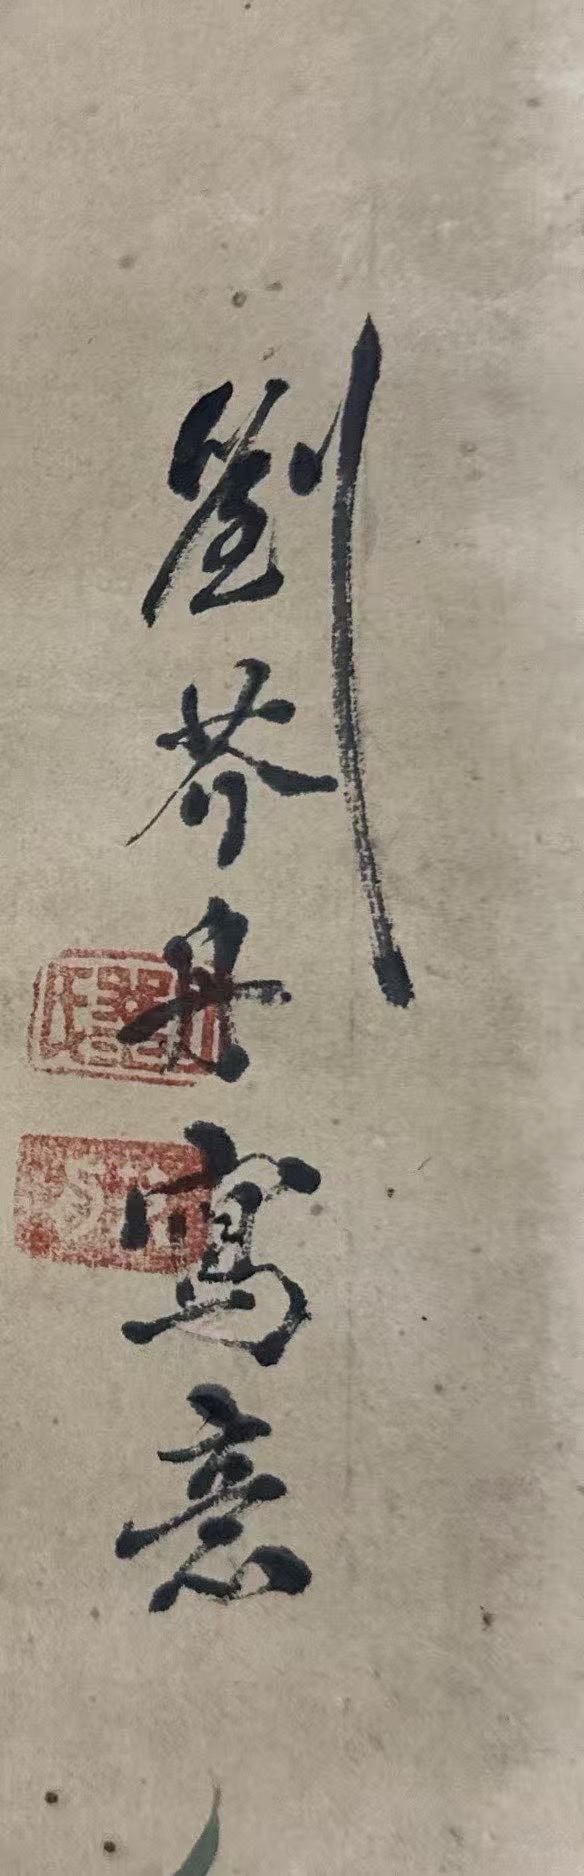 劉芥丹寫意